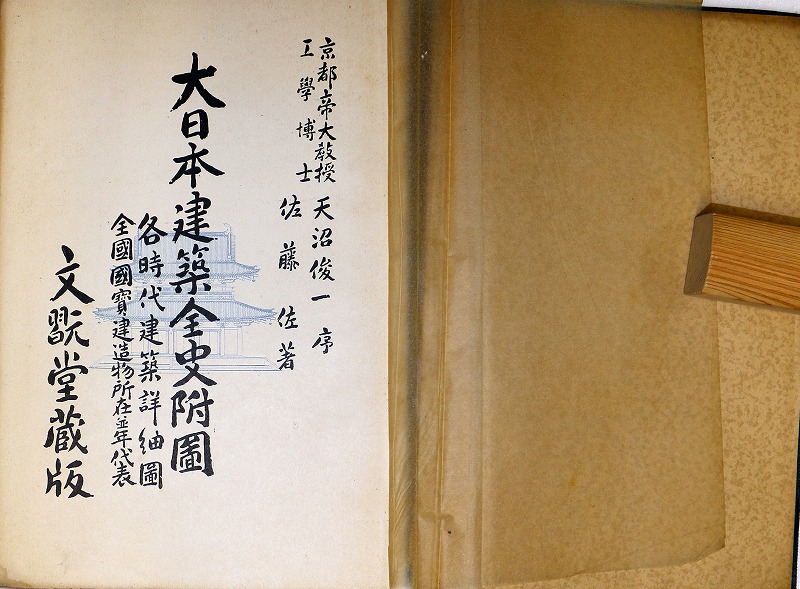 京都帝大教授 天沼俊一 序
工學博士 佐藤佐著
大日本建築全史附圖
各時代建築詳細圖
全國國寶建造物所在並年代表
文翫堂蔵版